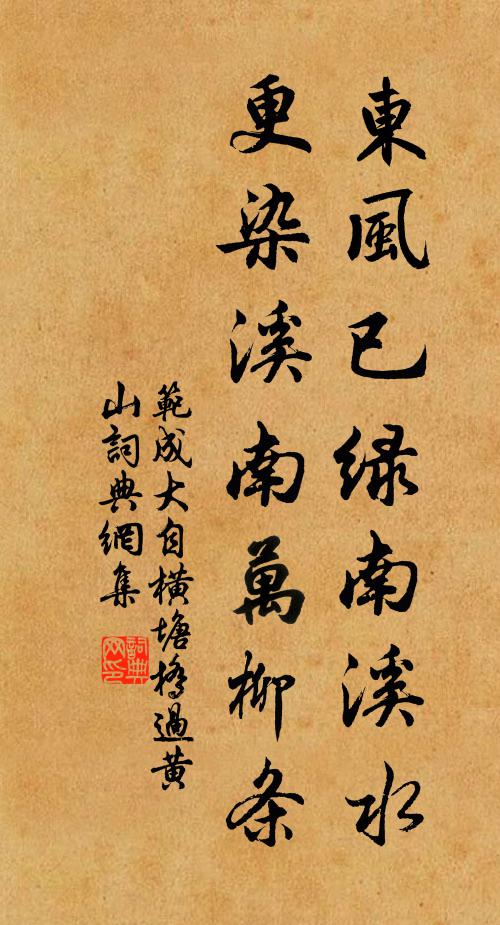 東風已绿南溪水
更染溪南萬柳条
範成大自橫塘橋過黄
山詞典網集
詞典
网印